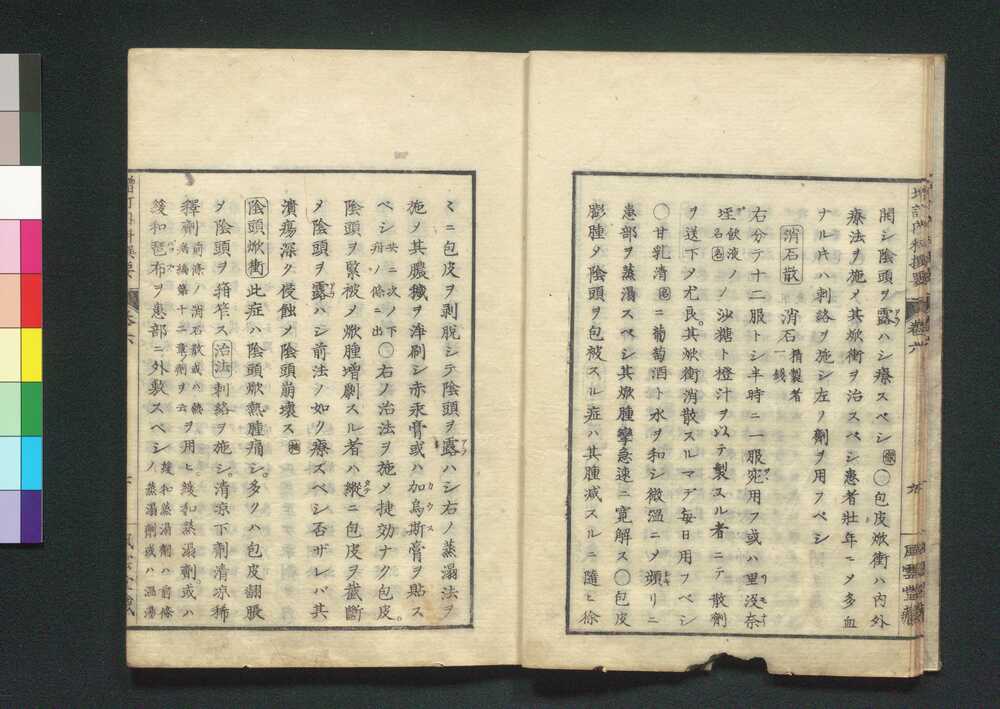 開シ陰頭ヲ露ハシ療スベシ〇包皮焮衝ハ內外
療法ヲ施メ其焮衝ヲ治スベシ患者壯年ニメ多血
ナル片ハ刺絡ヲ施シ左ノ劑ヲ用フベシ
消石散 消石 精製者 一錢
右分テ十二服トシ半時ニ一服宛用フ或ハ里沒奈
垤 飮液ノ名 ノ沙糖ト橙汁ヲ以テ製スル者ニテ散劑
ヲ送下タ尤良其焮衝消散スルマデ每日用フベシ
〇甘乳清ニ葡萄酒ト水ヲ和シ微溫ニメ頻リニ
患部ヲ蒸溻スベシ其焮腫攣急速ニ寬解ス〇包皮
膨腫メ陰頭ヲ包被スル症ハ其腫減スルニ隨ヒ徐
增訂內科撰要 卷六
風雲堂藏
ミニ包皮ヲ剥脫シテ陰頭ヲ露ハシ右ノ蒸溻法ヲ
施メ其膿穢ヲ淨刷シ赤汞膏或ハ加烏斯膏ヲ貼ス
ベシ 共ニ次ノ下疳ノ條ニ出 〇右ノ治法ヲ施メ捷効ナク包皮
陰頭ヲ緊被メ焮腫增劇スル者ハ縱ニ包皮ヲ截斷
メ陰頭ヲ露ハシ前法ノ如ク療ズベシ否ザレバ其
潰瘍深ク侵蝕メ陰頭崩壞ス
陰頭焮衝 此症ハ陰頭焮熱腫痛シ多クハ包皮翻脹
ヲ陰頭ヲ箝窄ス 治法 刺絡ヲ施シ清凉下劑清凉稀
釋劑 前條ノ消石散或ハ 第十二章ノ劑ヲ用ヒ緩和蒸溻劑或ハ
緩和琶布ヲ患部ニ外敷スベシ 緩和蒸溻劑ハ前條ノ蒸溻劑或ハ溫湯